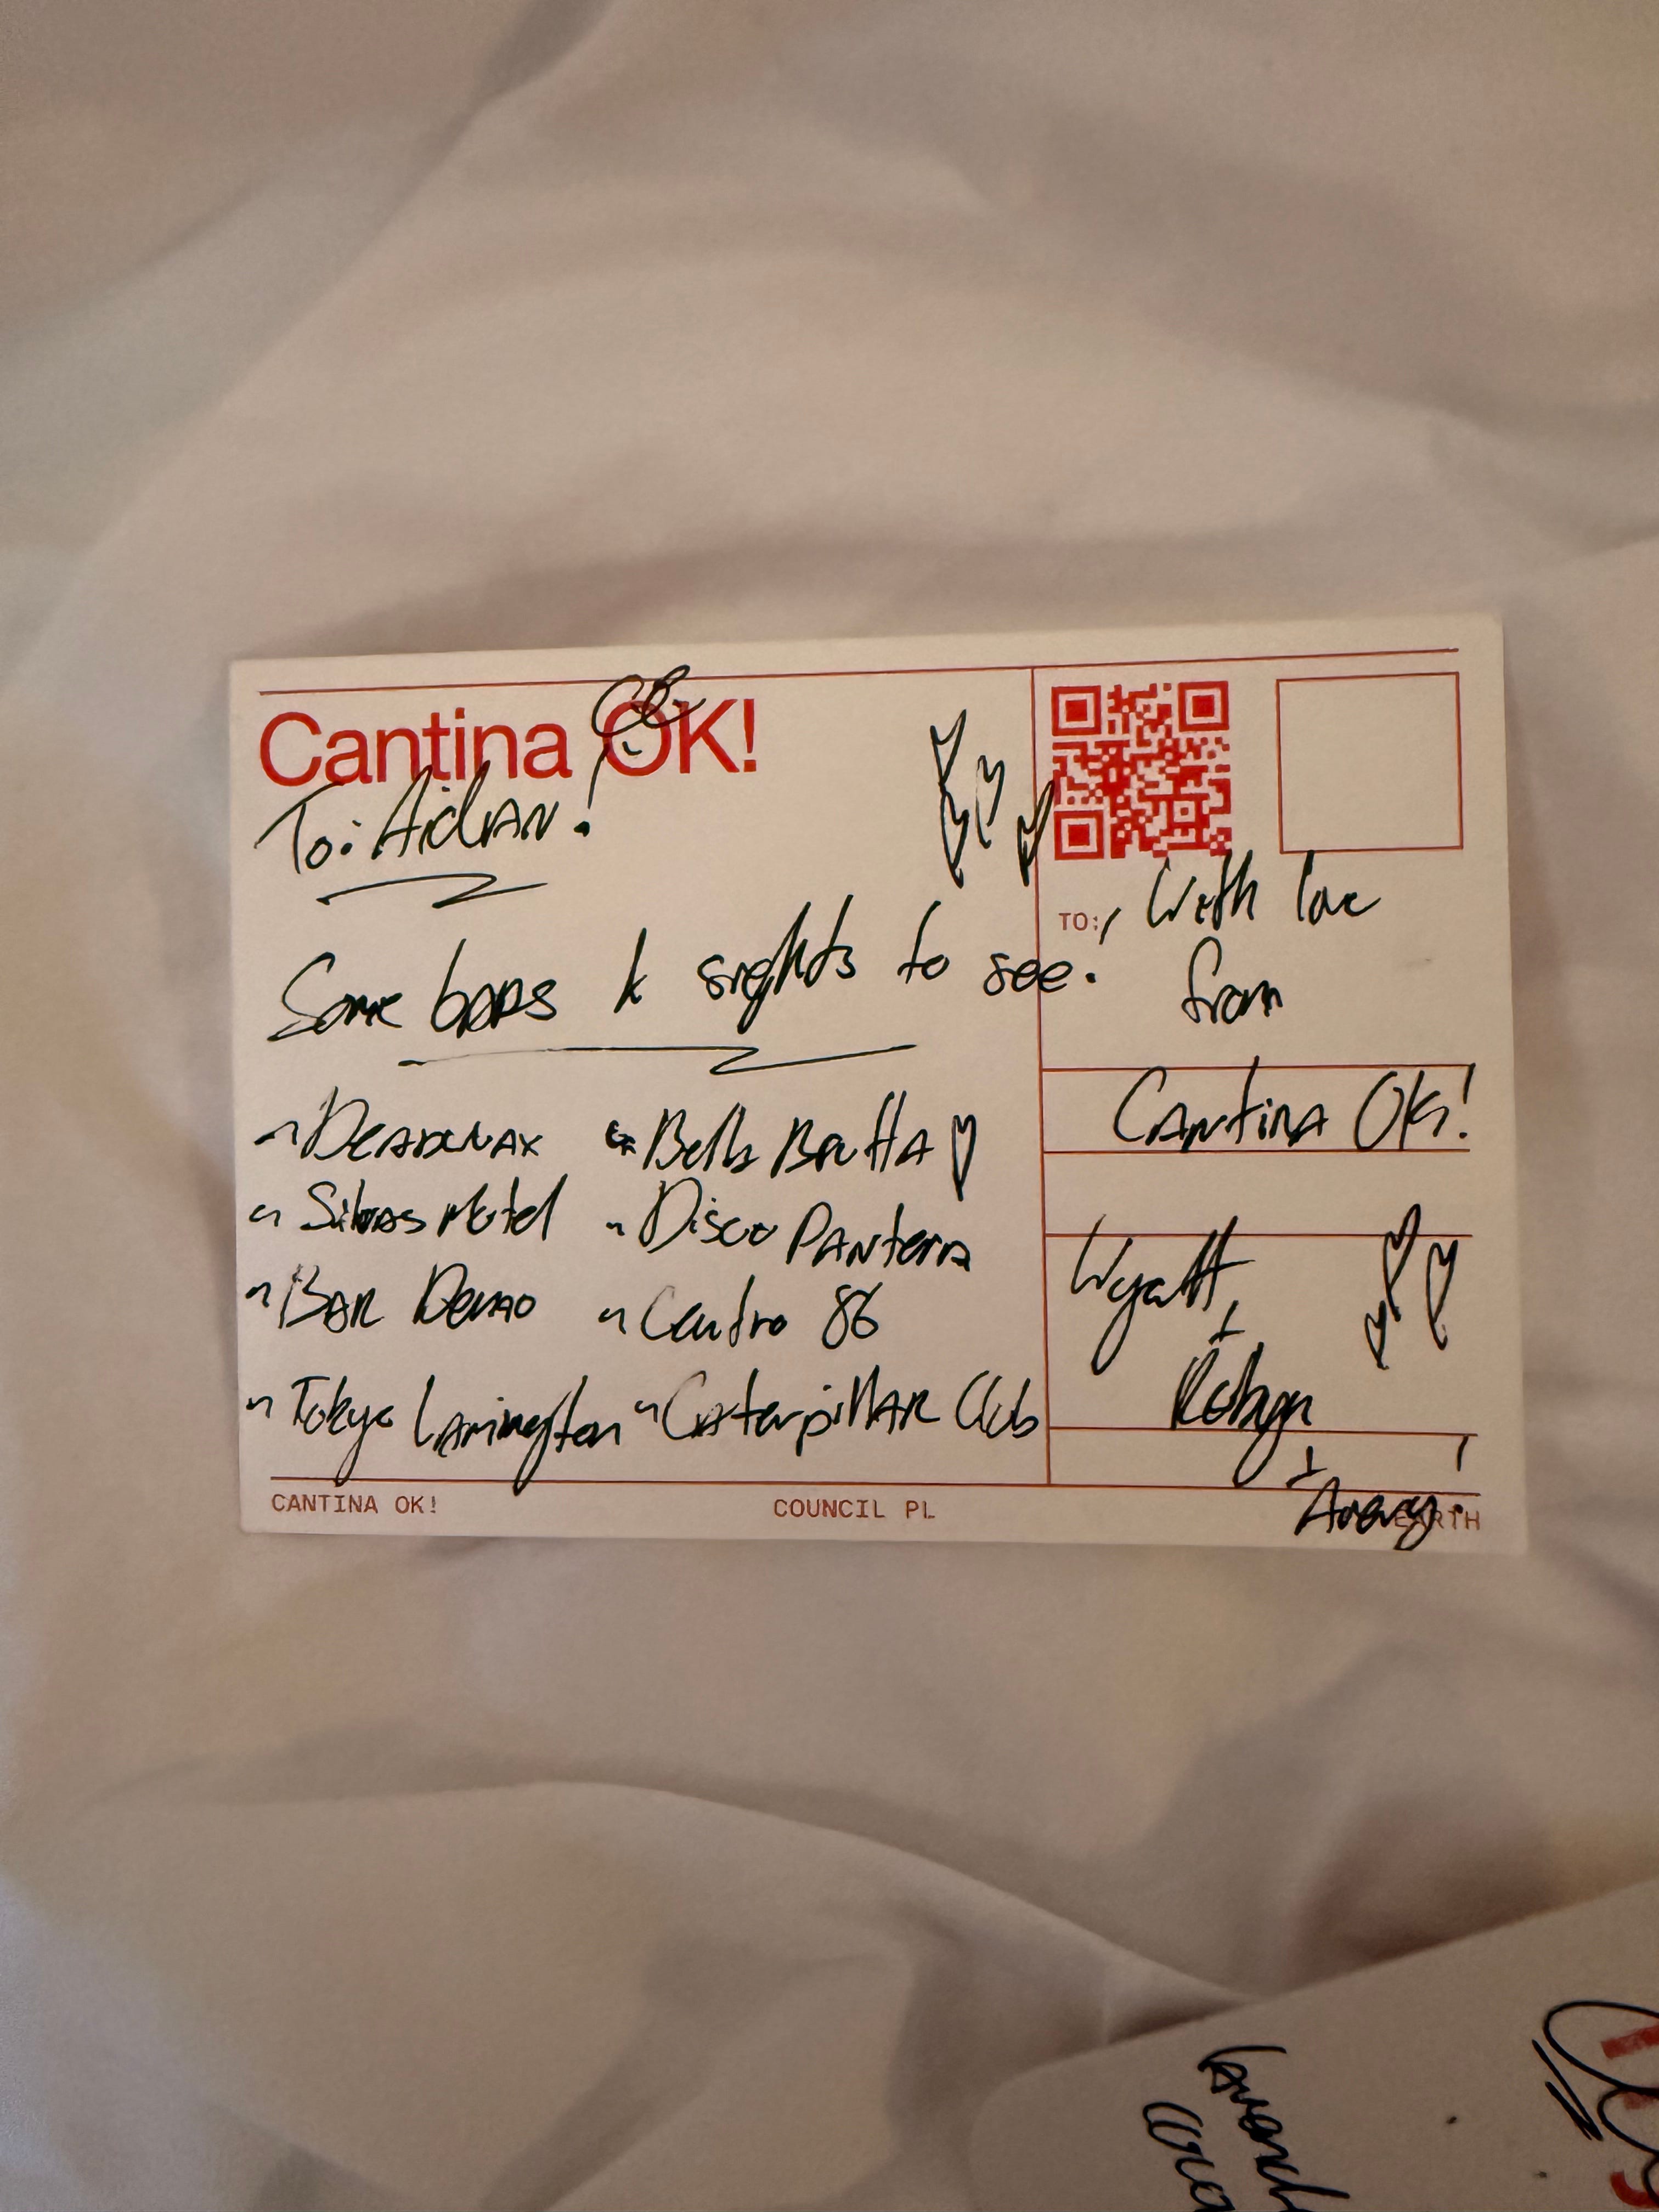 Cantina OK!
To: Aidan!
Some bars & sights to see.
~ Deadwax
~ Silvas Motel
~ Bar Demo
~ Tokyo Lamington
~ Bella Brutta
~ Disco Pantera
~ Centro 86
~ Caterpillar Club
TO:
With love
from
Cantina OK!
Wyatt,
+
Robyn
+
Avery.
CANTINA OK!
COUNCIL PL
EARTH